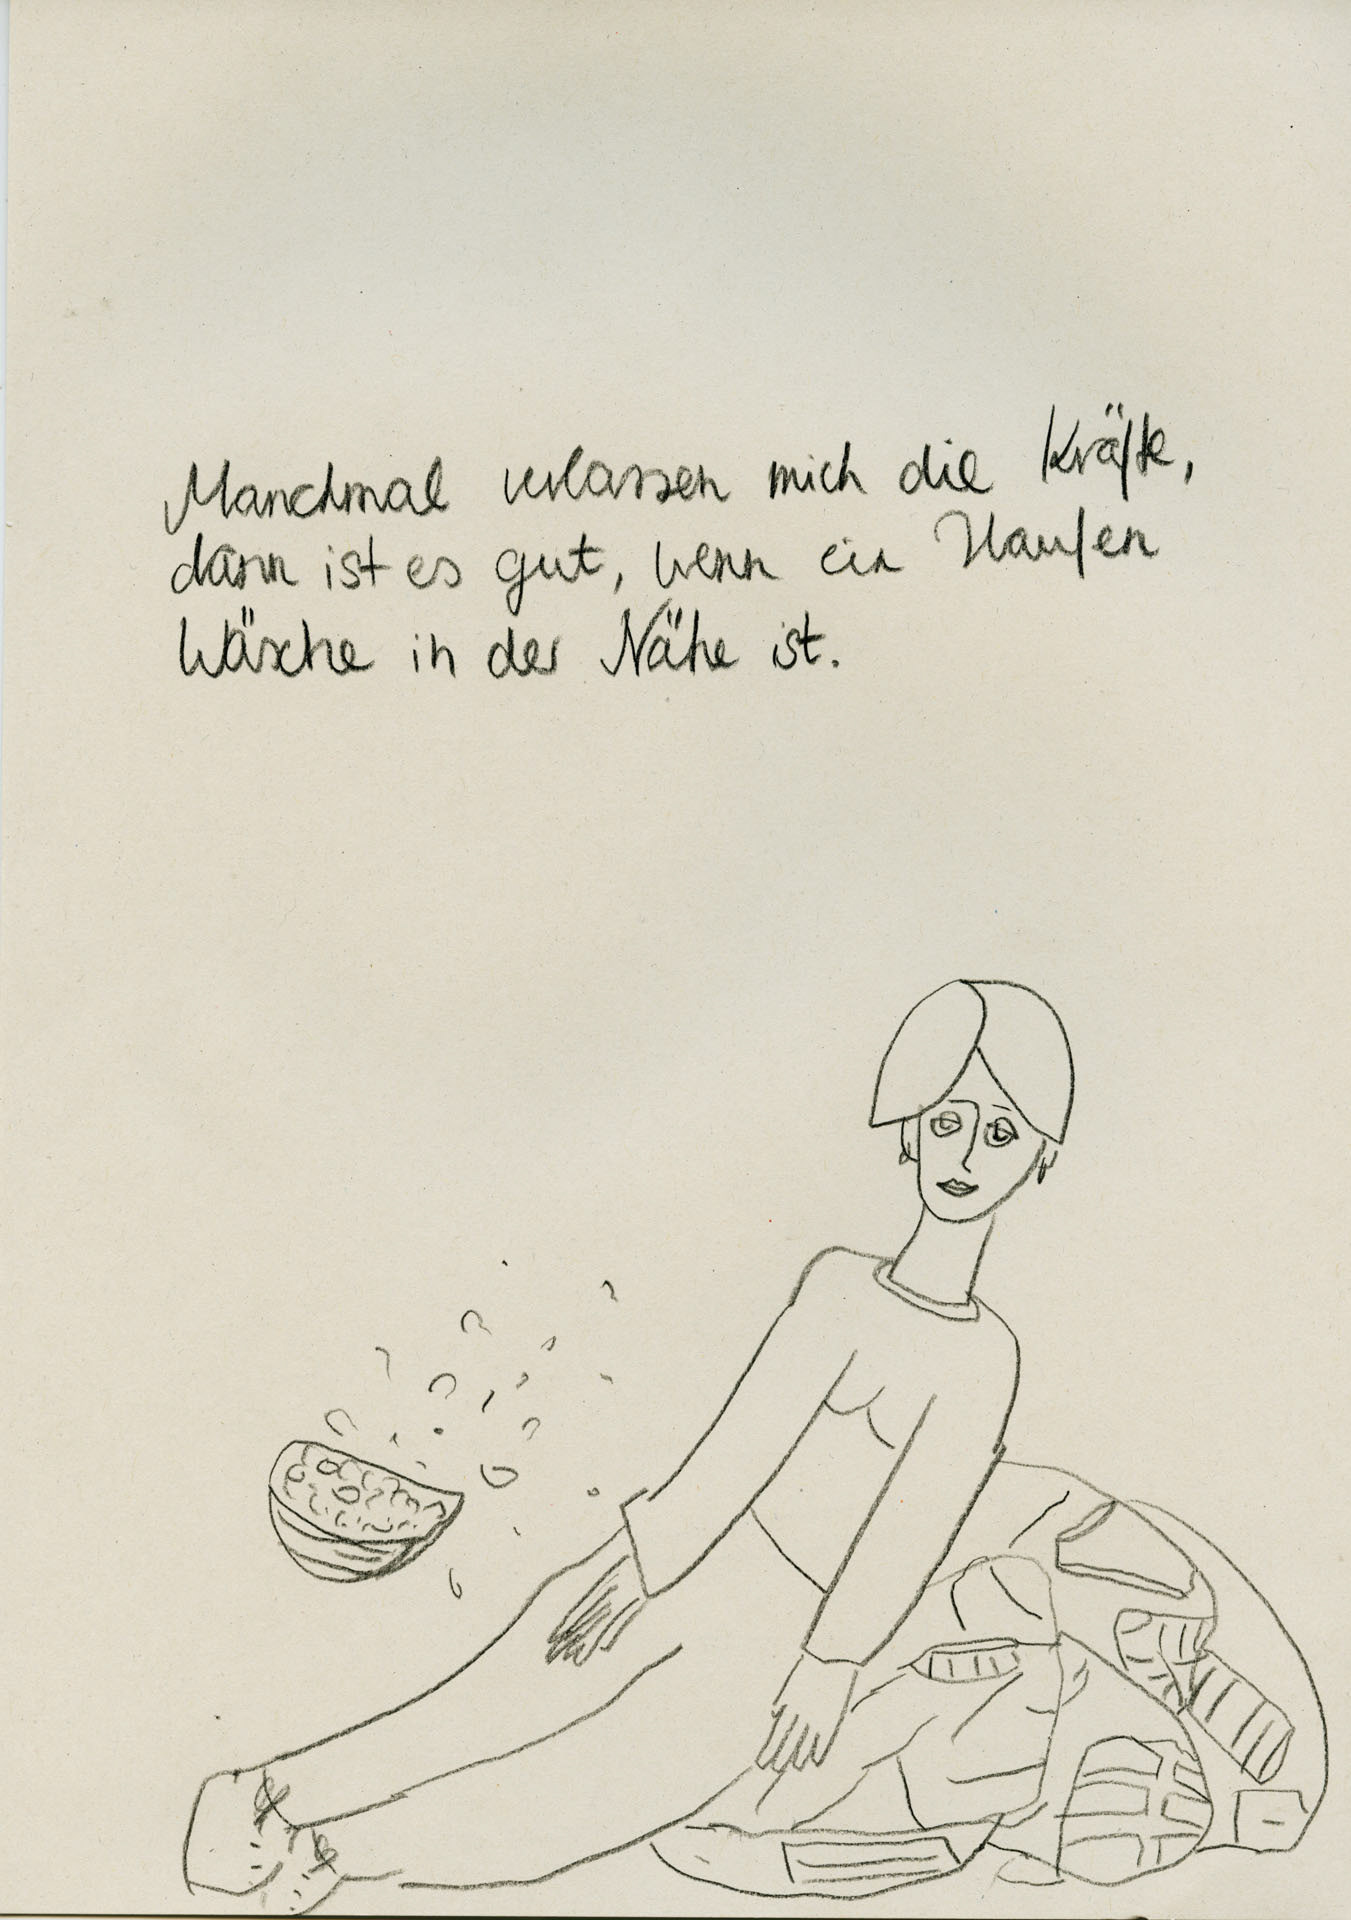 Manchmal verlassen mich die Kräfte,
dann ist es gut, wenn ein Haufen
Wäsche in der Nähe ist.